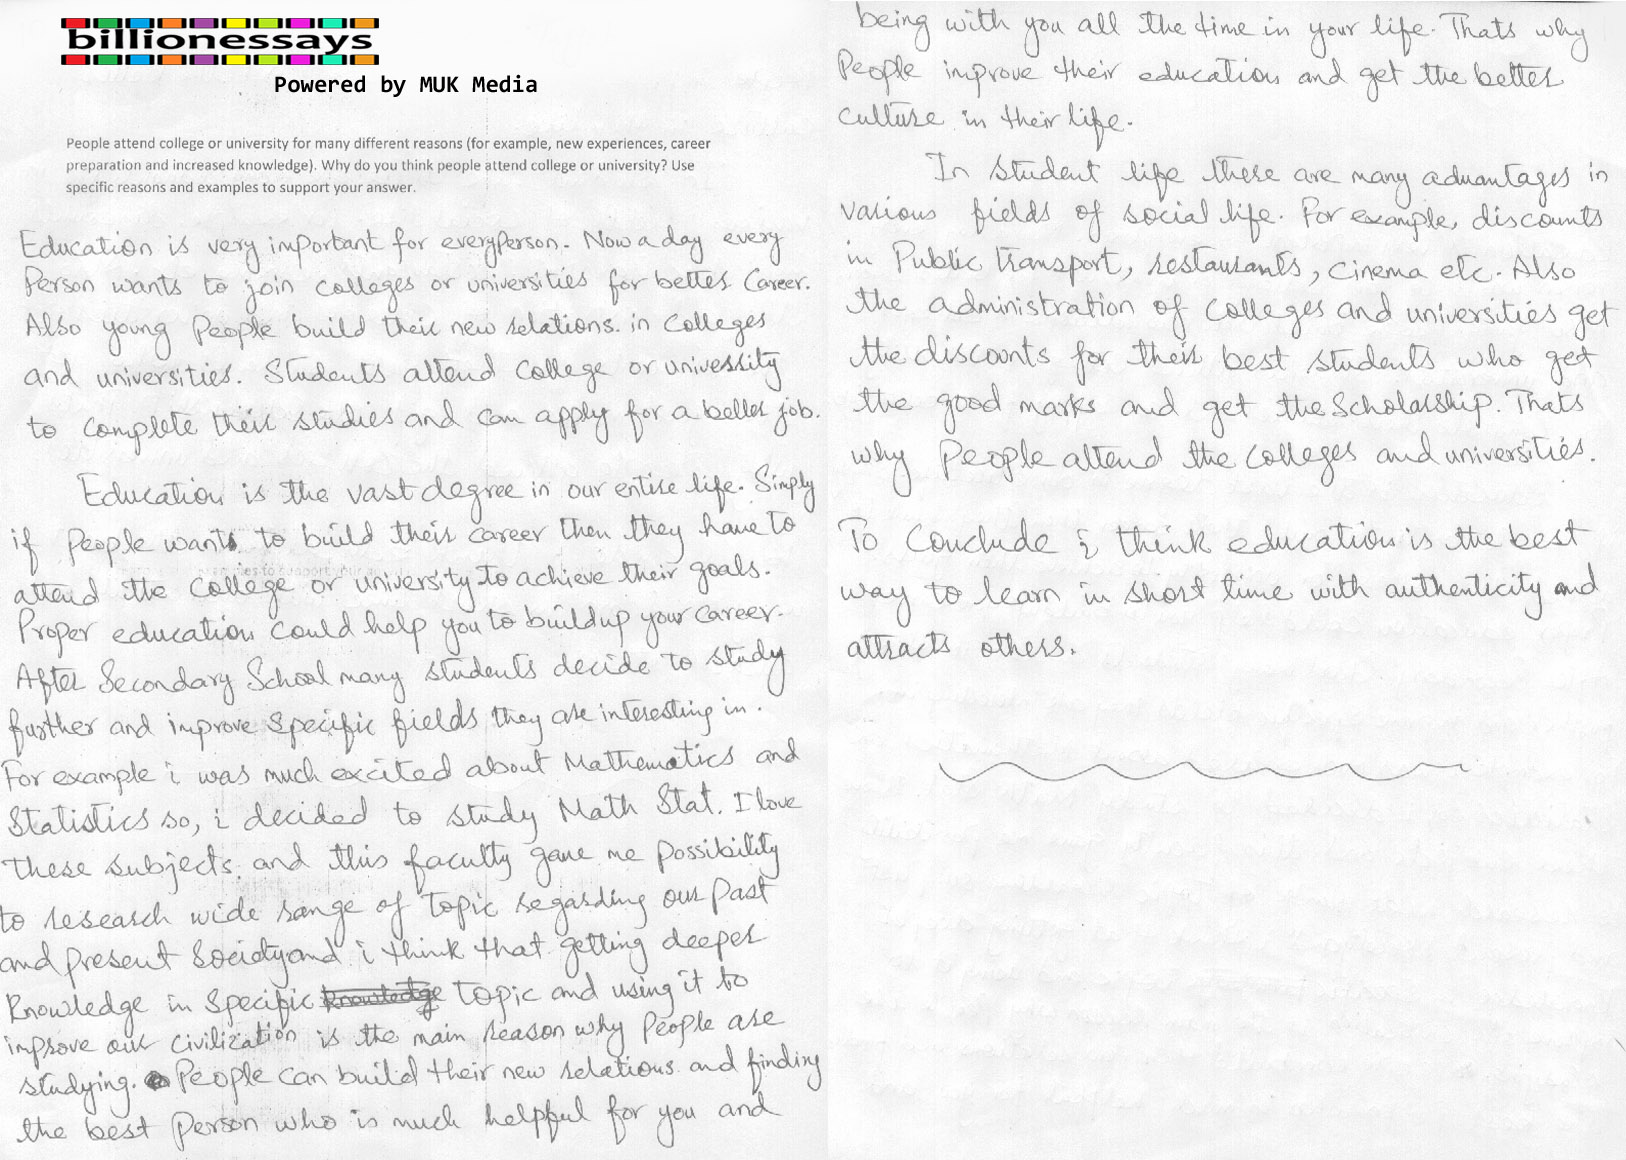 billionessays
Powered by MUK Media
People attend college or university for many different reasons (for example, new experiences, career
preparation and increased knowledge). Why do you think people attend college or university? Use
specific reasons and examples to support your answer.
Education is very important for everyperson. Now a day every
Person wants to join colleges or universities for better Career.
Also young People build their new relations. in Colleges
and universities. Students attend College or university
to complete their studies and can apply for a better job.
Education is the vast degree in our entire life. Simply
if People wants to build their career then they have to
attend the College or university to achieve their goals.
Proper education could help you to buildup your career.
After Secondary School many students decide to study
further and improve Specific fields they are interesting in.
For example i was much excited about Mathematics and
Statistics so, i decided to study Math Stat. I love
these subjects. and this faculty gave me possibility
to research wide range of topic regarding our past
and present Society and i think that getting deeper
knowledge in Specific knowledge topic and using it to
improve our civilization is the main reason why People are
studying. People can build their new relations and finding
the best Person who is much helpful for you and
being with you all the time in your life. Thats why
People improve their education and get the better
culture in their life.
In student life there are many advantages in
various fields of social life. For example, discounts
in Public transport, restaurants, cinema etc. Also
the administration of Colleges and universities get
the discounts for their best students who get
the good marks and get the Scholarship. Thats
why People attend the Colleges and universities.
To Conclude i think education is the best
way to learn in short time with authenticity and
attracts others.